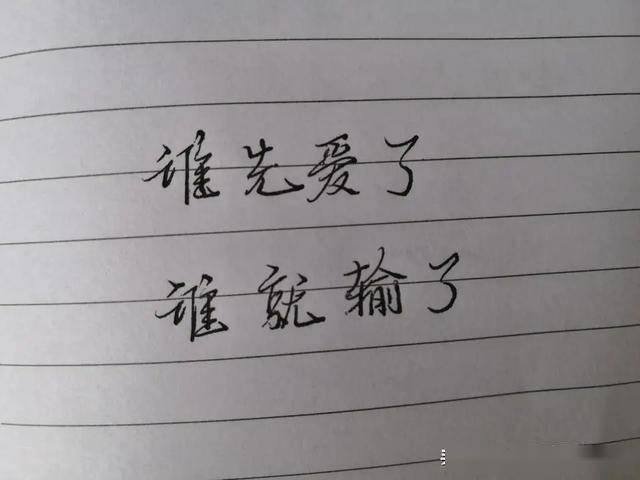 谁先爱了
谁就输了